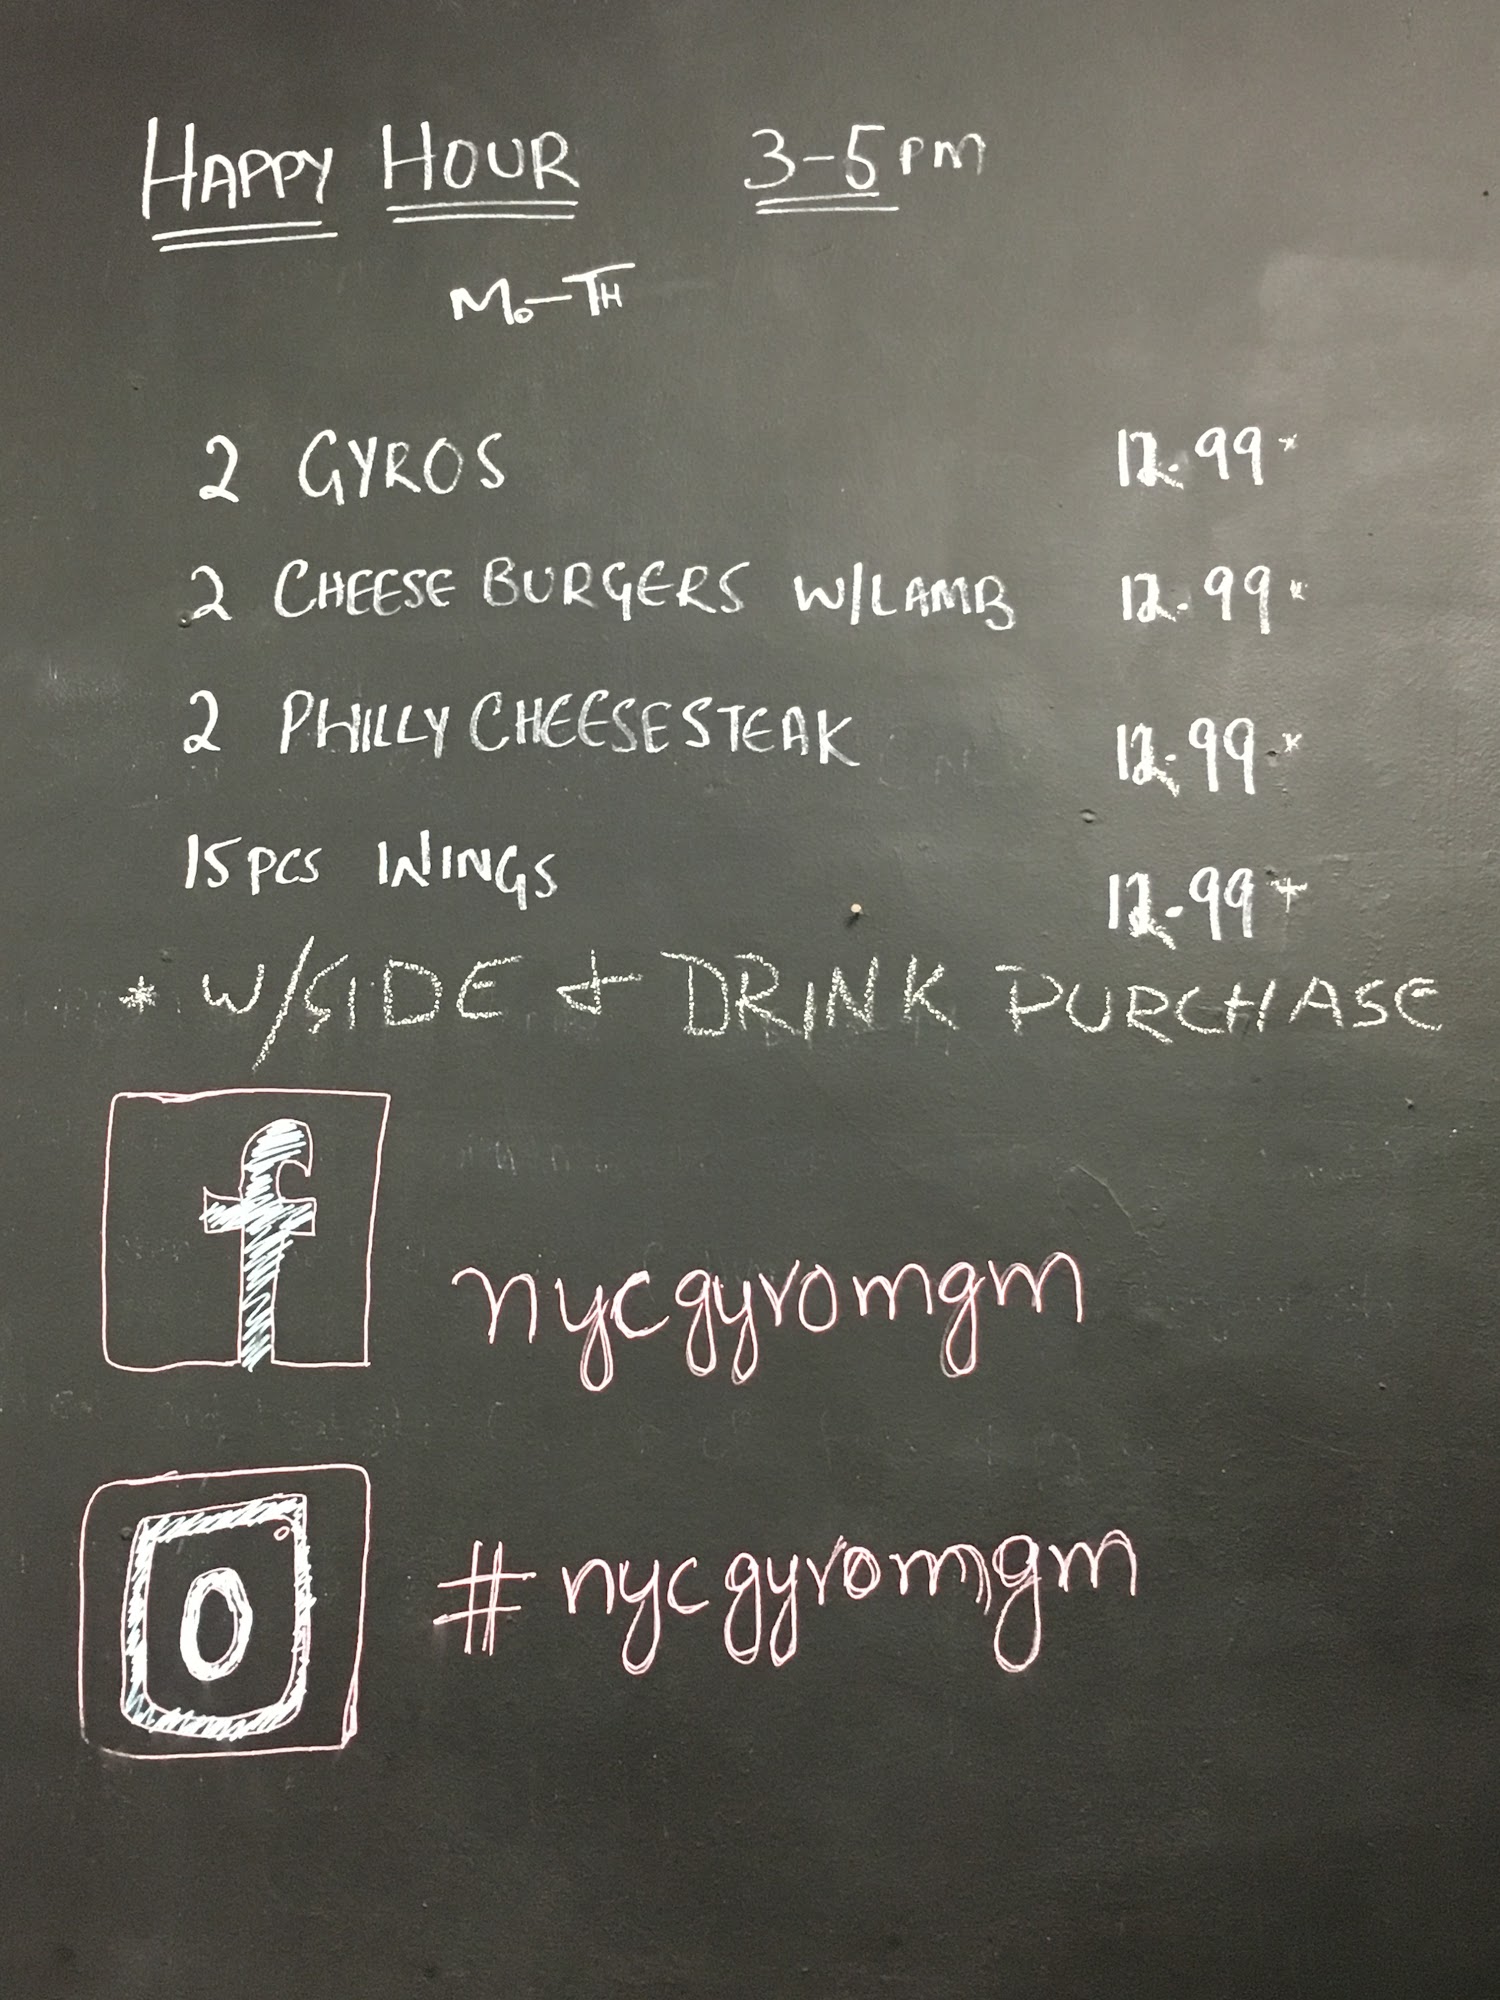 HAPPY HOUR 3-5 PM
MO-TH
2 GYROS 12.99*
2 CHEESE BURGERS W/LAMB 12.99*
2 PHILLY CHEESESTEAK 12.99*
15 PCS WINGS 12.99*
* W/SIDE & DRINK PURCHASE
f nycgyromgm
#nycgyromgm